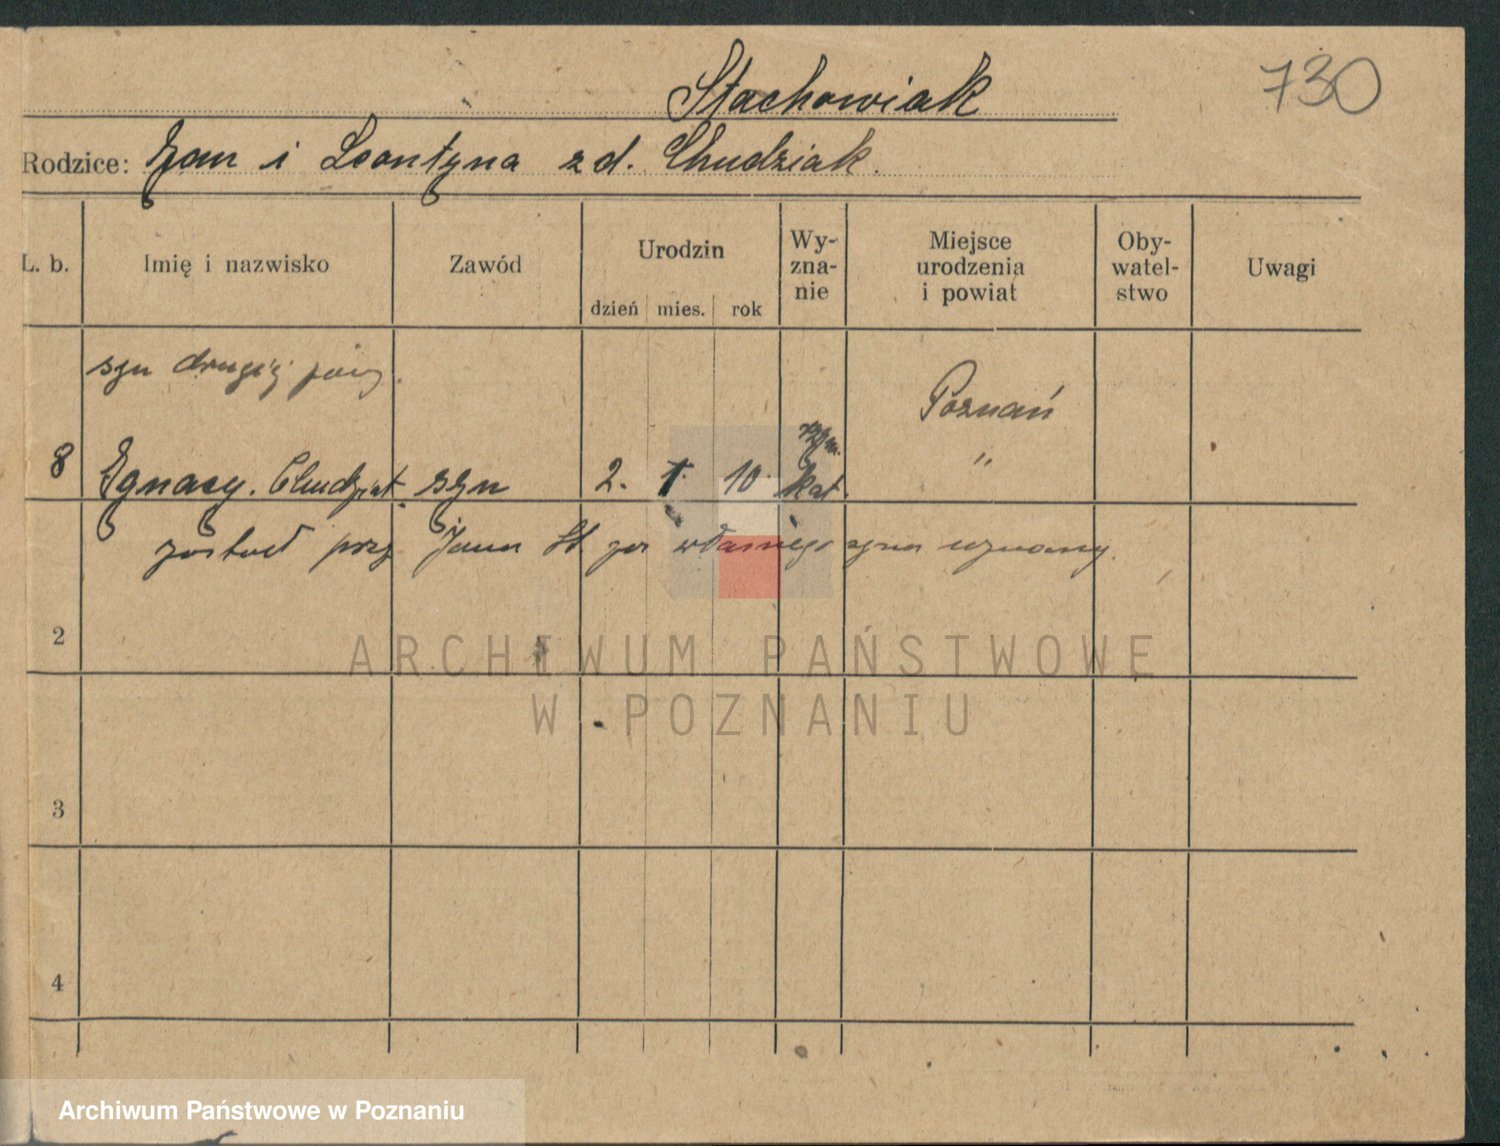 Stachowiak
730
Rodzice: Jan i Leontyna z d. Chudziak.
L. b. Imię i nazwisko Zawód Urodzin Wy-zna-nie Miejsce urodzenia i powiat Oby-watel-stwo Uwagi
dzień mies. rok
syn drugiej
Poznań
rzym.
8 Ignacy. Chudziak syn 2. 1. 10. kat. "
został przez Jana St za własnego syna uznany.
2
ARCHIWUM PAŃSTWOWE
W POZNANIU
3
4
Archiwum Państwowe w Poznaniu